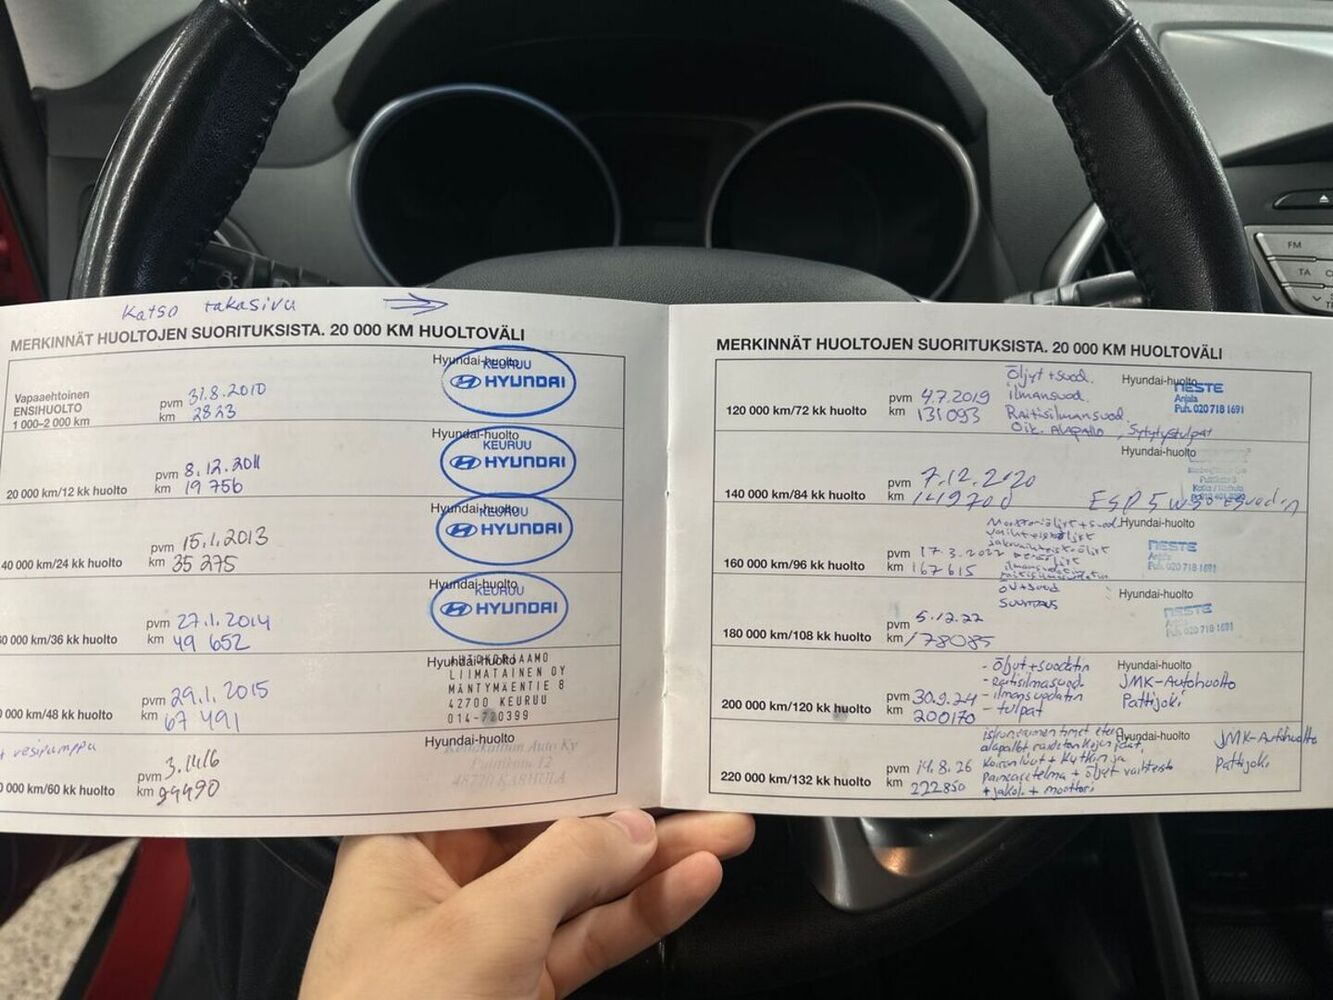 Katso takasivu
MERKINNÄT HUOLTOJEN SUORITUKSISTA. 20 000 KM HUOLTOVÄLI
Vapaaehtoinen
ENSIHUOLTO
1 000–2 000 km
pvm 31.8.2010
km 2823
Hyundai-huolto
KEURUU
HYUNDAI
20 000 km/12 kk huolto
pvm 8.12.2011
km 19 756
Hyundai-huolto
KEURUU
HYUNDAI
40 000 km/24 kk huolto
pvm 15.1.2013
km 35 275
Hyundai-huolto
KEURUU
HYUNDAI
0 000 km/36 kk huolto
pvm 27.1.2014
km 49 652
Hyundai-huolto
KEURUU
HYUNDAI
0 000 km/48 kk huolto
pvm 29.1.2015
km 67 491
Hyundai-huolto
LIIMATAINEN OY
MÄNTYMÄENTIE 8
42700 KEURUU
014-720399
+ vesipumppu
0 000 km/60 kk huolto
pvm
km
Hyundai-huolto
Auto Ky
48770 KARHULA
MERKINNÄT HUOLTOJEN SUORITUKSISTA. 20 000 KM HUOLTOVÄLI
120 000 km/72 kk huolto
pvm 4.7.2019
km 131 093
Öljyt + suod.
ilmansuod.
Raitisilmansuod.
Oik. Alapallo, Sytytystulpat
Hyundai-huolto
NESTE
Anjala
Puh. 020 718 1691
140 000 km/84 kk huolto
pvm 7.12.2020
km 149700
Hyundai-huolto
ESP 5w30
160 000 km/96 kk huolto
pvm 17.3.2022
km 167615
Hyundai-huolto
NESTE
Anjala
Puh. 020 718 1691
180 000 km/108 kk huolto
pvm 5.12.22
km 178085
Hyundai-huolto
NESTE
Anjala
Puh. 020 718 1691
200 000 km/120 kk huolto
pvm 30.9.24
km 200170
- öljyt + suodatin
- raitisilmasuod
- ilmansuodatin
- tulpat
Hyundai-huolto
JMK-Autohuolto
Pattijoki
220 000 km/132 kk huolto
pvm 14.8.26
km 222850
+ moottori
Hyundai-huolto
JMK-Autohuolto
Pattijoki
FM
TA